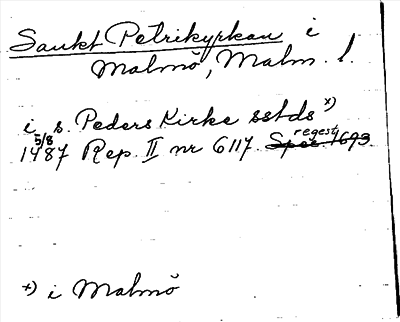 Sankt Petrikyrkan i
Malmö, Malm. l.
i s. Peders Kirke sstds x)
5/8 1487 Rep. II nr 6117. Spec. regest. 1693.
x) i Malmö